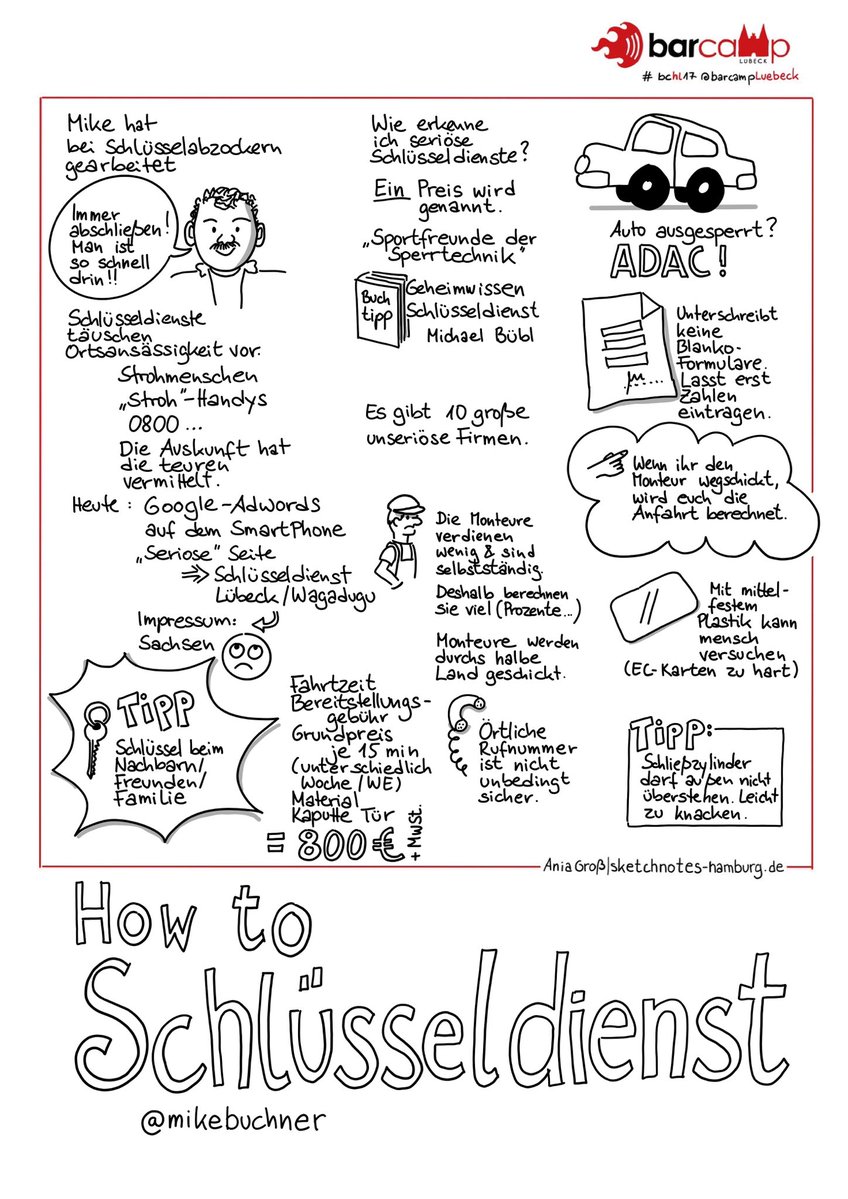 barcamp
LÜBECK
# bchl17 @barcampLuebeck
Mike hat
bei Schlüsselabzockern
gearbeitet
Immer
abschließen!
Man ist
so schnell
drin!!
Schlüsseldienste
täuschen
Ortsansässigkeit vor:
Strohmenschen
„Stroh"-Handys
0800 ...
Die Auskunft hat
die teuren
vermittelt.
Heute: Google-Adwords
auf dem SmartPhone
„Seriose" Seite
⇒ Schlüsseldienst
Lübeck/Wagadugu
Impressum:
Sachsen
TIPP
Schlüssel beim
Nachbarn/
Freunden/
Familie
Wie erkenne
ich seriöse
Schlüsseldienste?
Ein Preis wird
genannt.
„Sportfreunde der
Sperrtechnik"
Buch
tipp
Geheimwissen
Schlüsseldienst
Michael Bübl
Es gibt 10 große
unseriöse Firmen.
Die Monteure
verdienen
wenig & sind
selbstständig.
Deshalb berechnen
sie viel (Prozente...)
Monteure werden
durchs halbe
Land geschickt.
Fahrtzeit
Bereitstellungs-
gebühr
Grundpreis
je 15 min
(unterschiedlich
Woche/WE)
Material
Kaputte Tür
= 800 €
+ MwSt.
Örtliche
Rufnummer
ist nicht
unbedingt
sicher.
Auto ausgesperrt?
ADAC!
Unterschreibt
keine
Blanko-
Formulare.
Lasst erst
Zahlen
eintragen.
Wenn ihr den
Monteur wegschickt,
wird euch die
Anfahrt berechnet.
Mit mittel-
festem
Plastik kann
mensch
versuchen
(EC-Karten zu hart)
TIPP:
Schließzylinder
darf außen nicht
überstehen. Leicht
zu knacken.
Ania Groß|sketchnotes-hamburg.de
How to
Schlüsseldienst
@mikebuchner